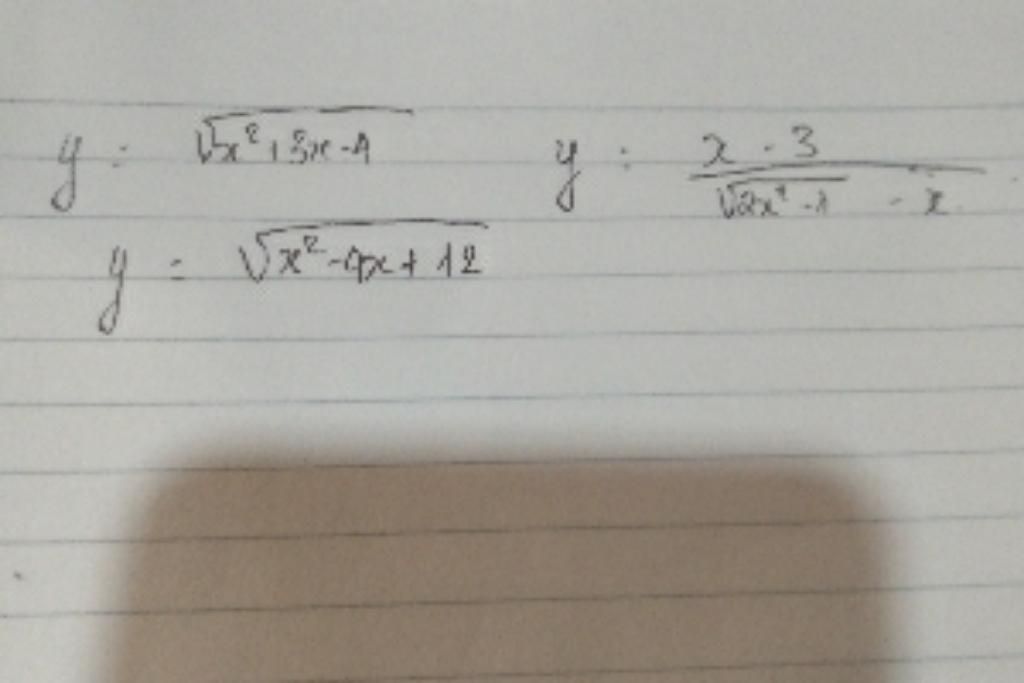 y = √x²+3x-4 y = x - 3 / √2x²-1 - x
y = √x²-4x+12